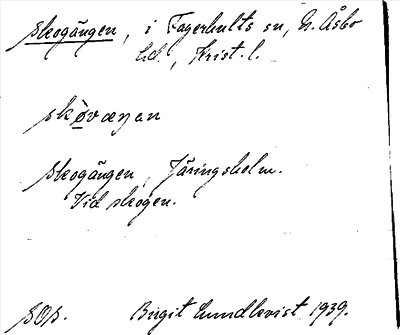 Skogängen, i Fagerhults sn, N. Åsbo
hd., Krist. l.
skòvæŋan
Skogängen, Järingsholm.
Vid skogen.
SOS. Birgit Lundkvist 1939.